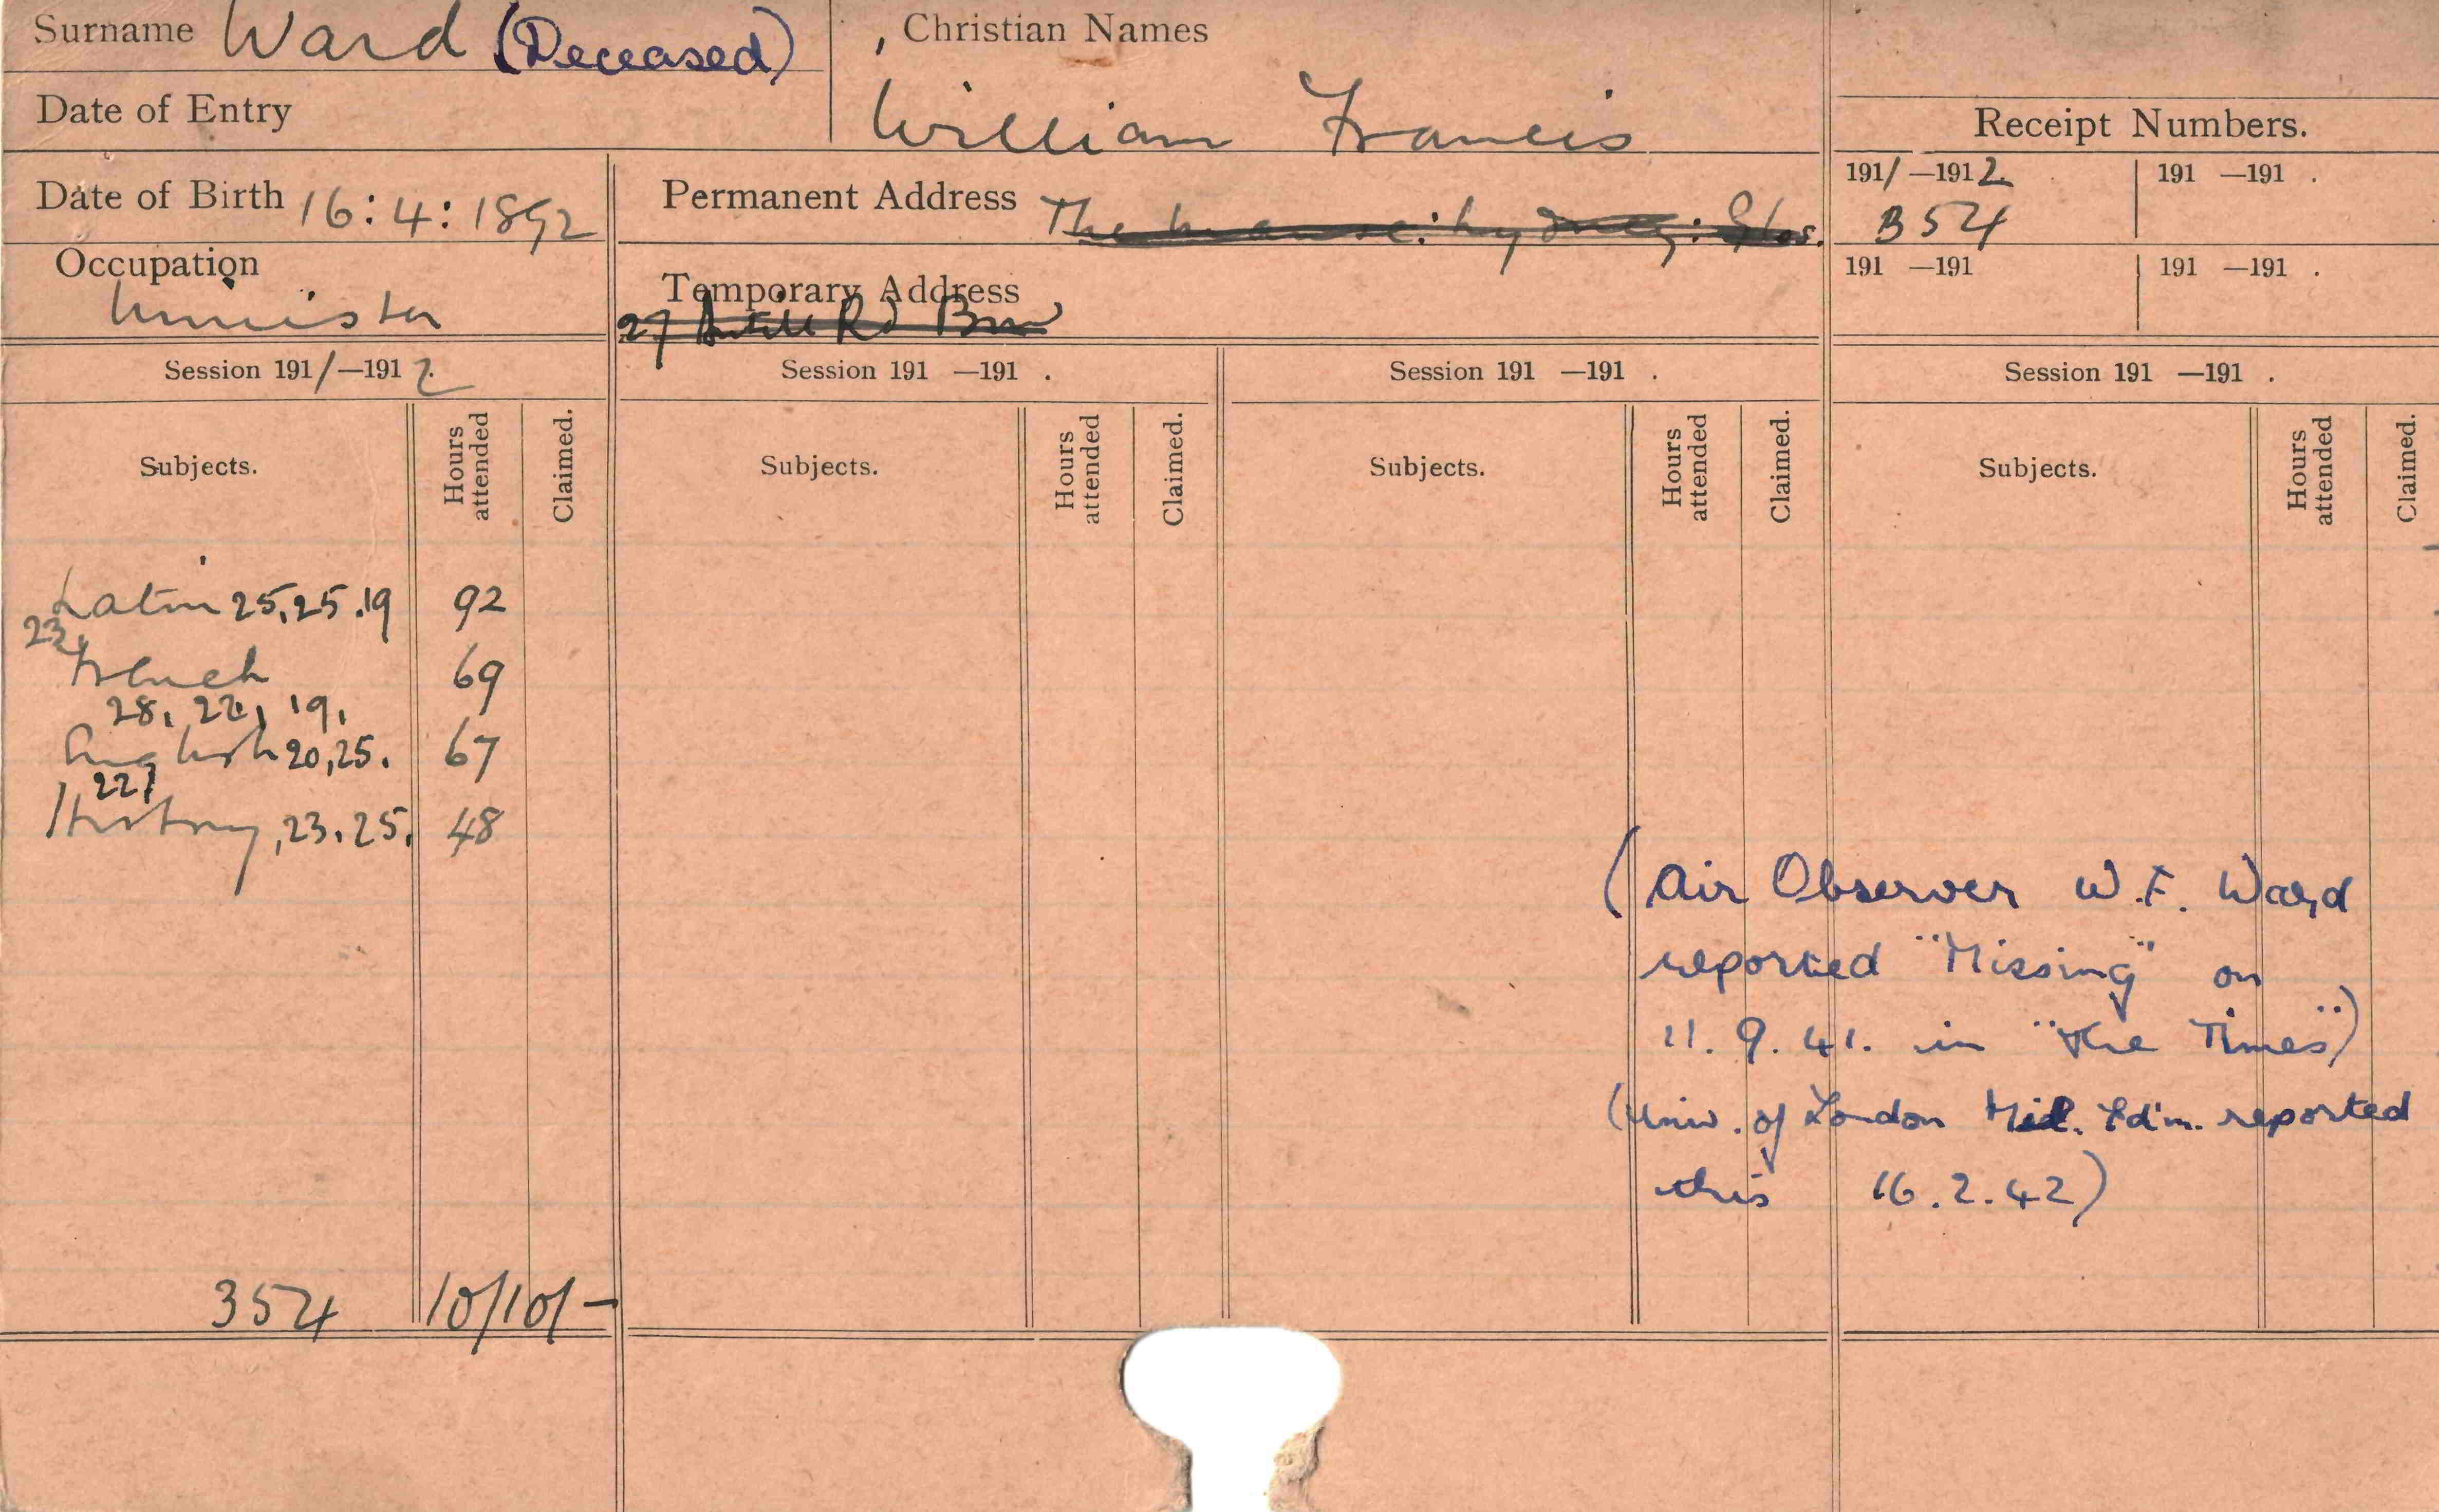 Surname Ward (Deceased)
, Christian Names
William Francis
Date of Entry
Receipt Numbers.
Date of Birth 16:4:1892
Permanent Address The Manse: Lydney: Glos.
191/ —1912.
191 —191 .
B54
Occupation
Minister
Temporary Address
27 Rd
191 —191
191 —191 .
Session 191/—1912.
Session 191 —191 .
Session 191 —191 .
Session 191 —191 .
Subjects.
Hours attended
Claimed.
Subjects.
Hours attended
Claimed.
Subjects.
Hours attended
Claimed.
Subjects.
Hours attended
Claimed.
Latin 25,25.19 92
23,
French 69
28, 22, 19,
English 20,25. 67
22,
History, 23.25. 48
(Air Observer W.F. Ward
reported "Missing" on
11.9.41. in "The Times")
(Univ. of London Mil. Ed'n. reported
this 16.2.42)
354 10/10/-